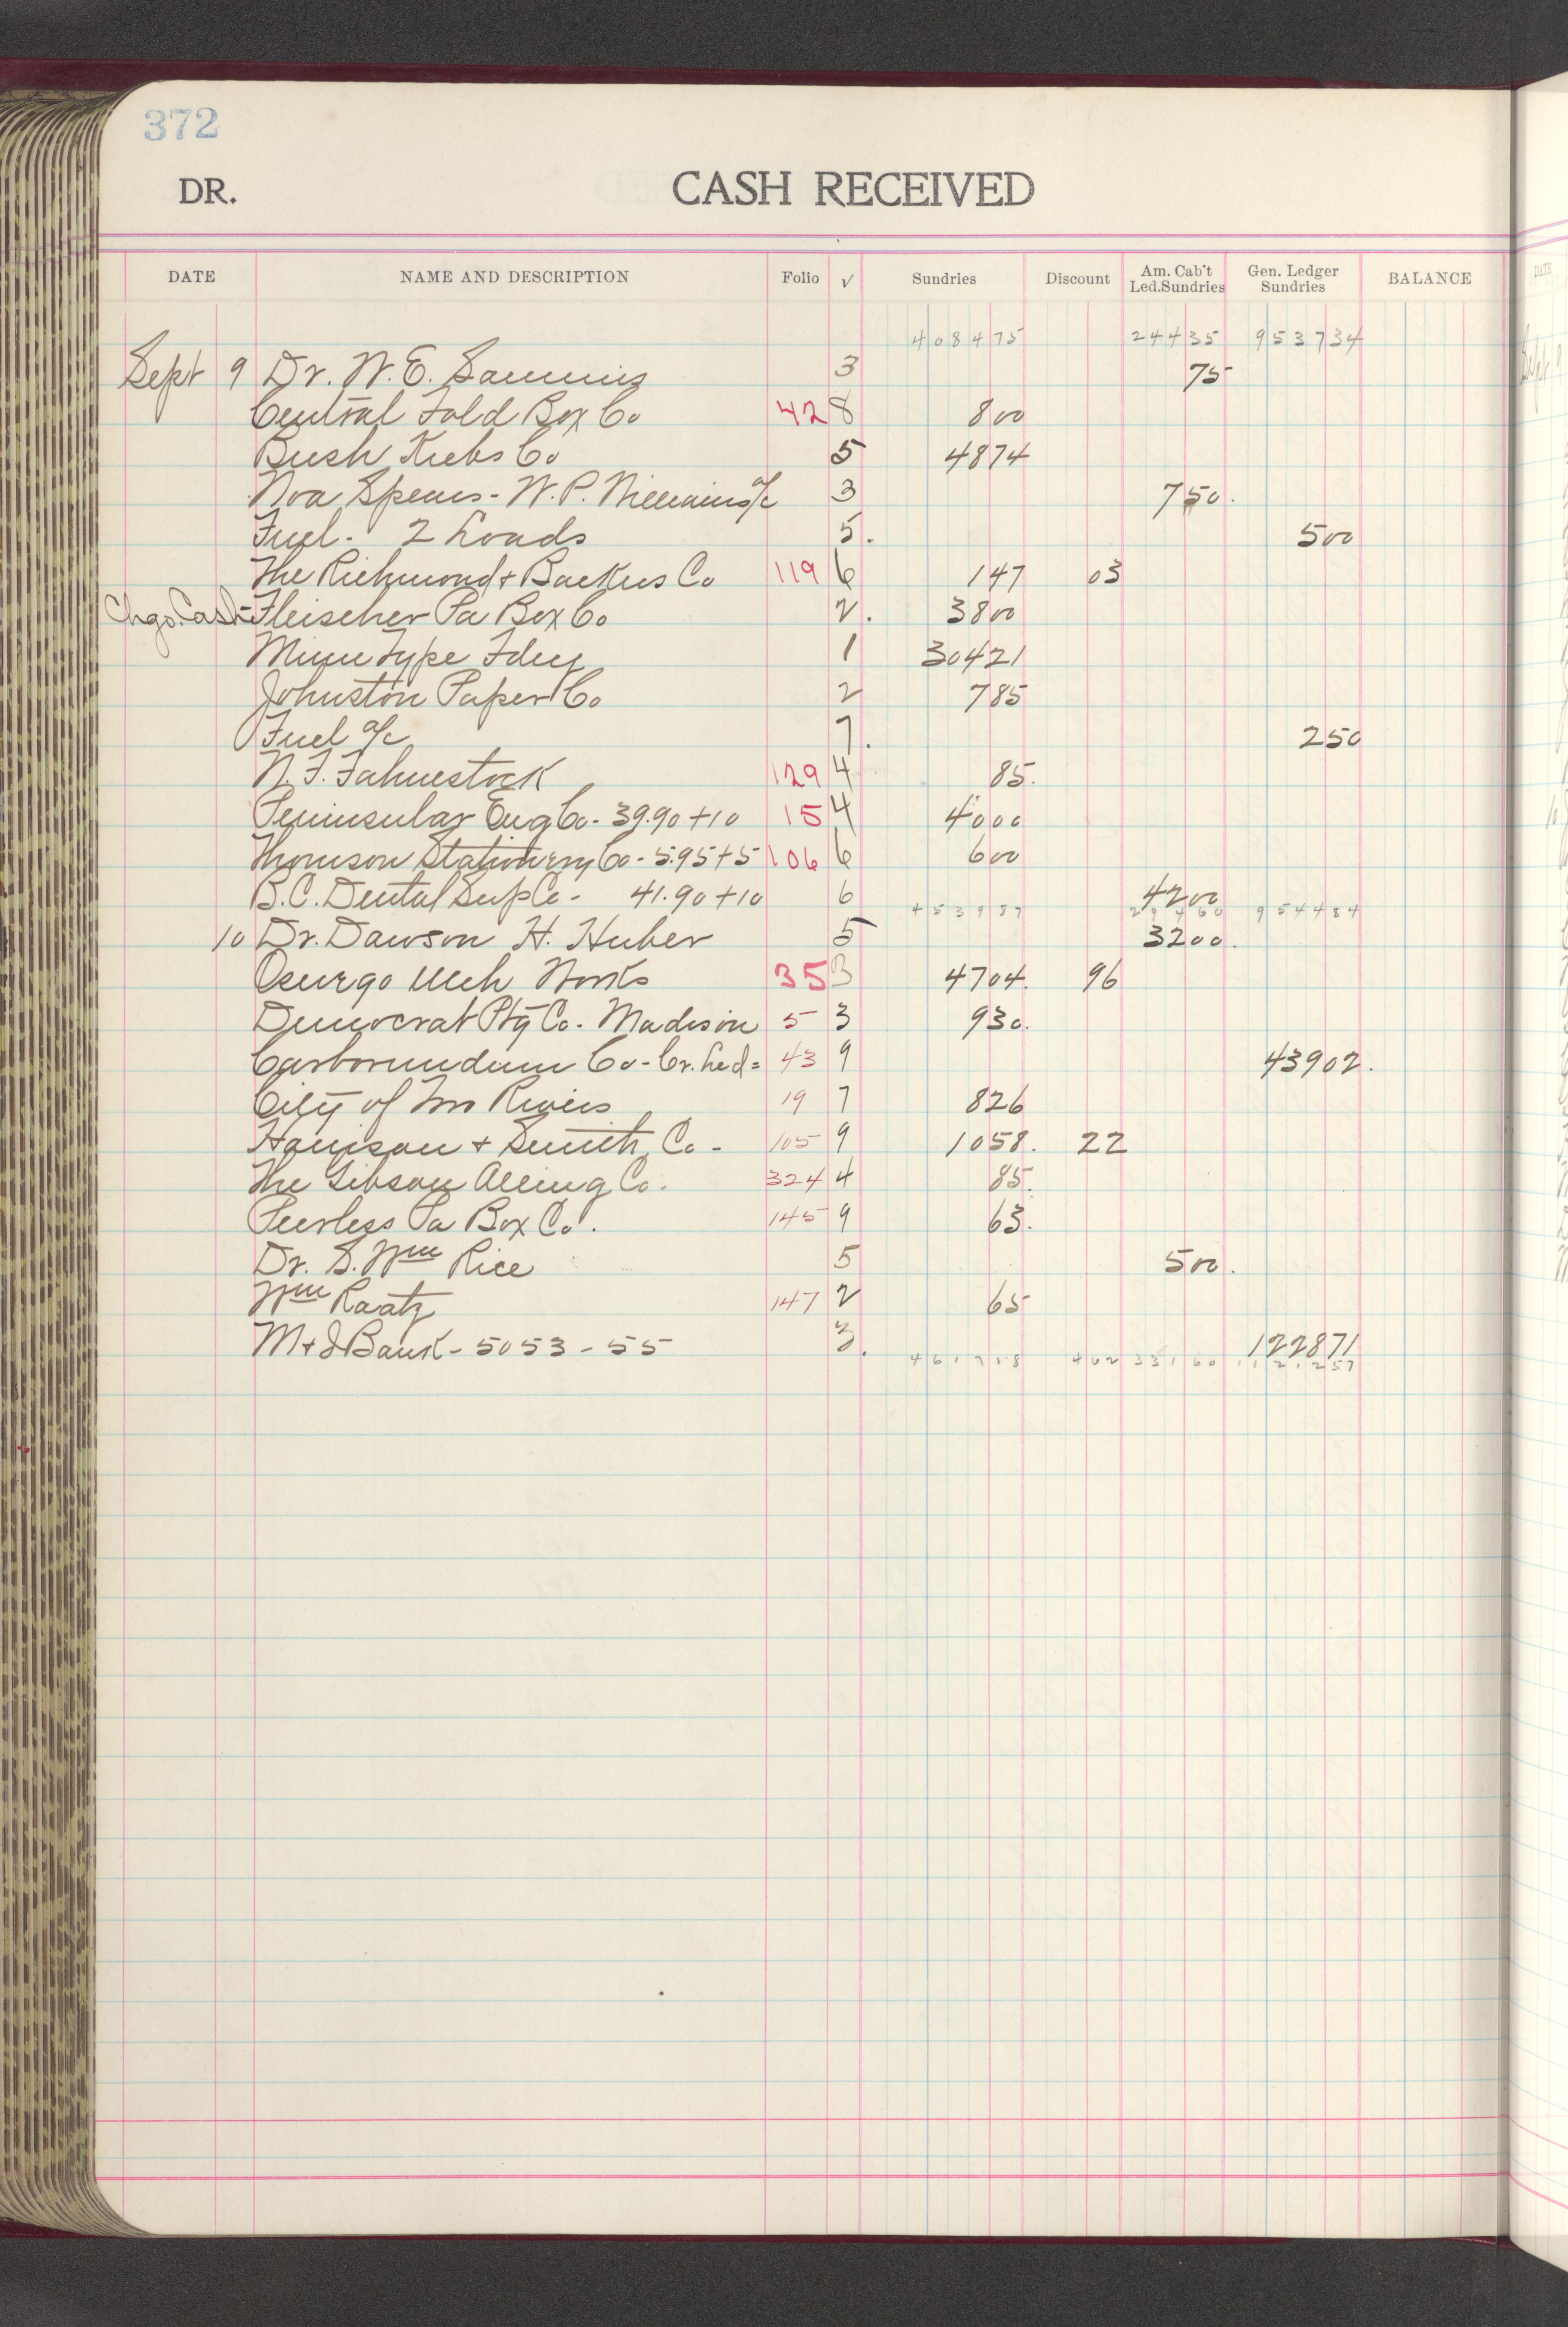 372
DR. CASH RECEIVED
DATE NAME AND DESCRIPTION Folio √ Sundries Discount Am. Cab't Led.Sundries Gen. Ledger Sundries BALANCE
408475 24435 953734
Sept 9 Dr. W. E. Sammis 3 75
Central Fold Box Co 42 8 800
Bush Krebs Co 5 4874
Noa Spears - W. P. Williams a/c 3 750.
Fuel - 2 Loads 5. 500
The Richmond + Backus Co 119 6 147 03
Chgo. Cash - Fleischer Pa Box Co 2. 3800
Minn Type Fdry 1 30421
Johnston Paper Co 2 785
Fuel a/c 7. 250
N. F. Fahnestock 129 4 85.
Peninsular Eng Co - 39.90 + 10 15 4 4000
Thomson Stationery Co - 5.95 + 5 106 6 600
B. C. Dental Sup Co - 41.90 + 10 6 4200
453987 29460 954484
10 Dr. Dawson H. Huber 5 3200.
Mch Works 35 3 4704. 96
Democrat Ptg Co. Madison 5 3 930.
Carborundum Co - Cr. Led = 43 9 43902.
City of Two Rivers 19 7 826
Harrison + Smith Co - 105 9 1058. 22
The Gibson Alling Co. 324 4 85.
Peerless Pa Box Co. 145 9 63.
Dr. S. Wm Rice 5 500.
Wm Raatz 147 2 65
M + I Bank - 5053 - 55 3. 122871
461718 402 33160 1121257